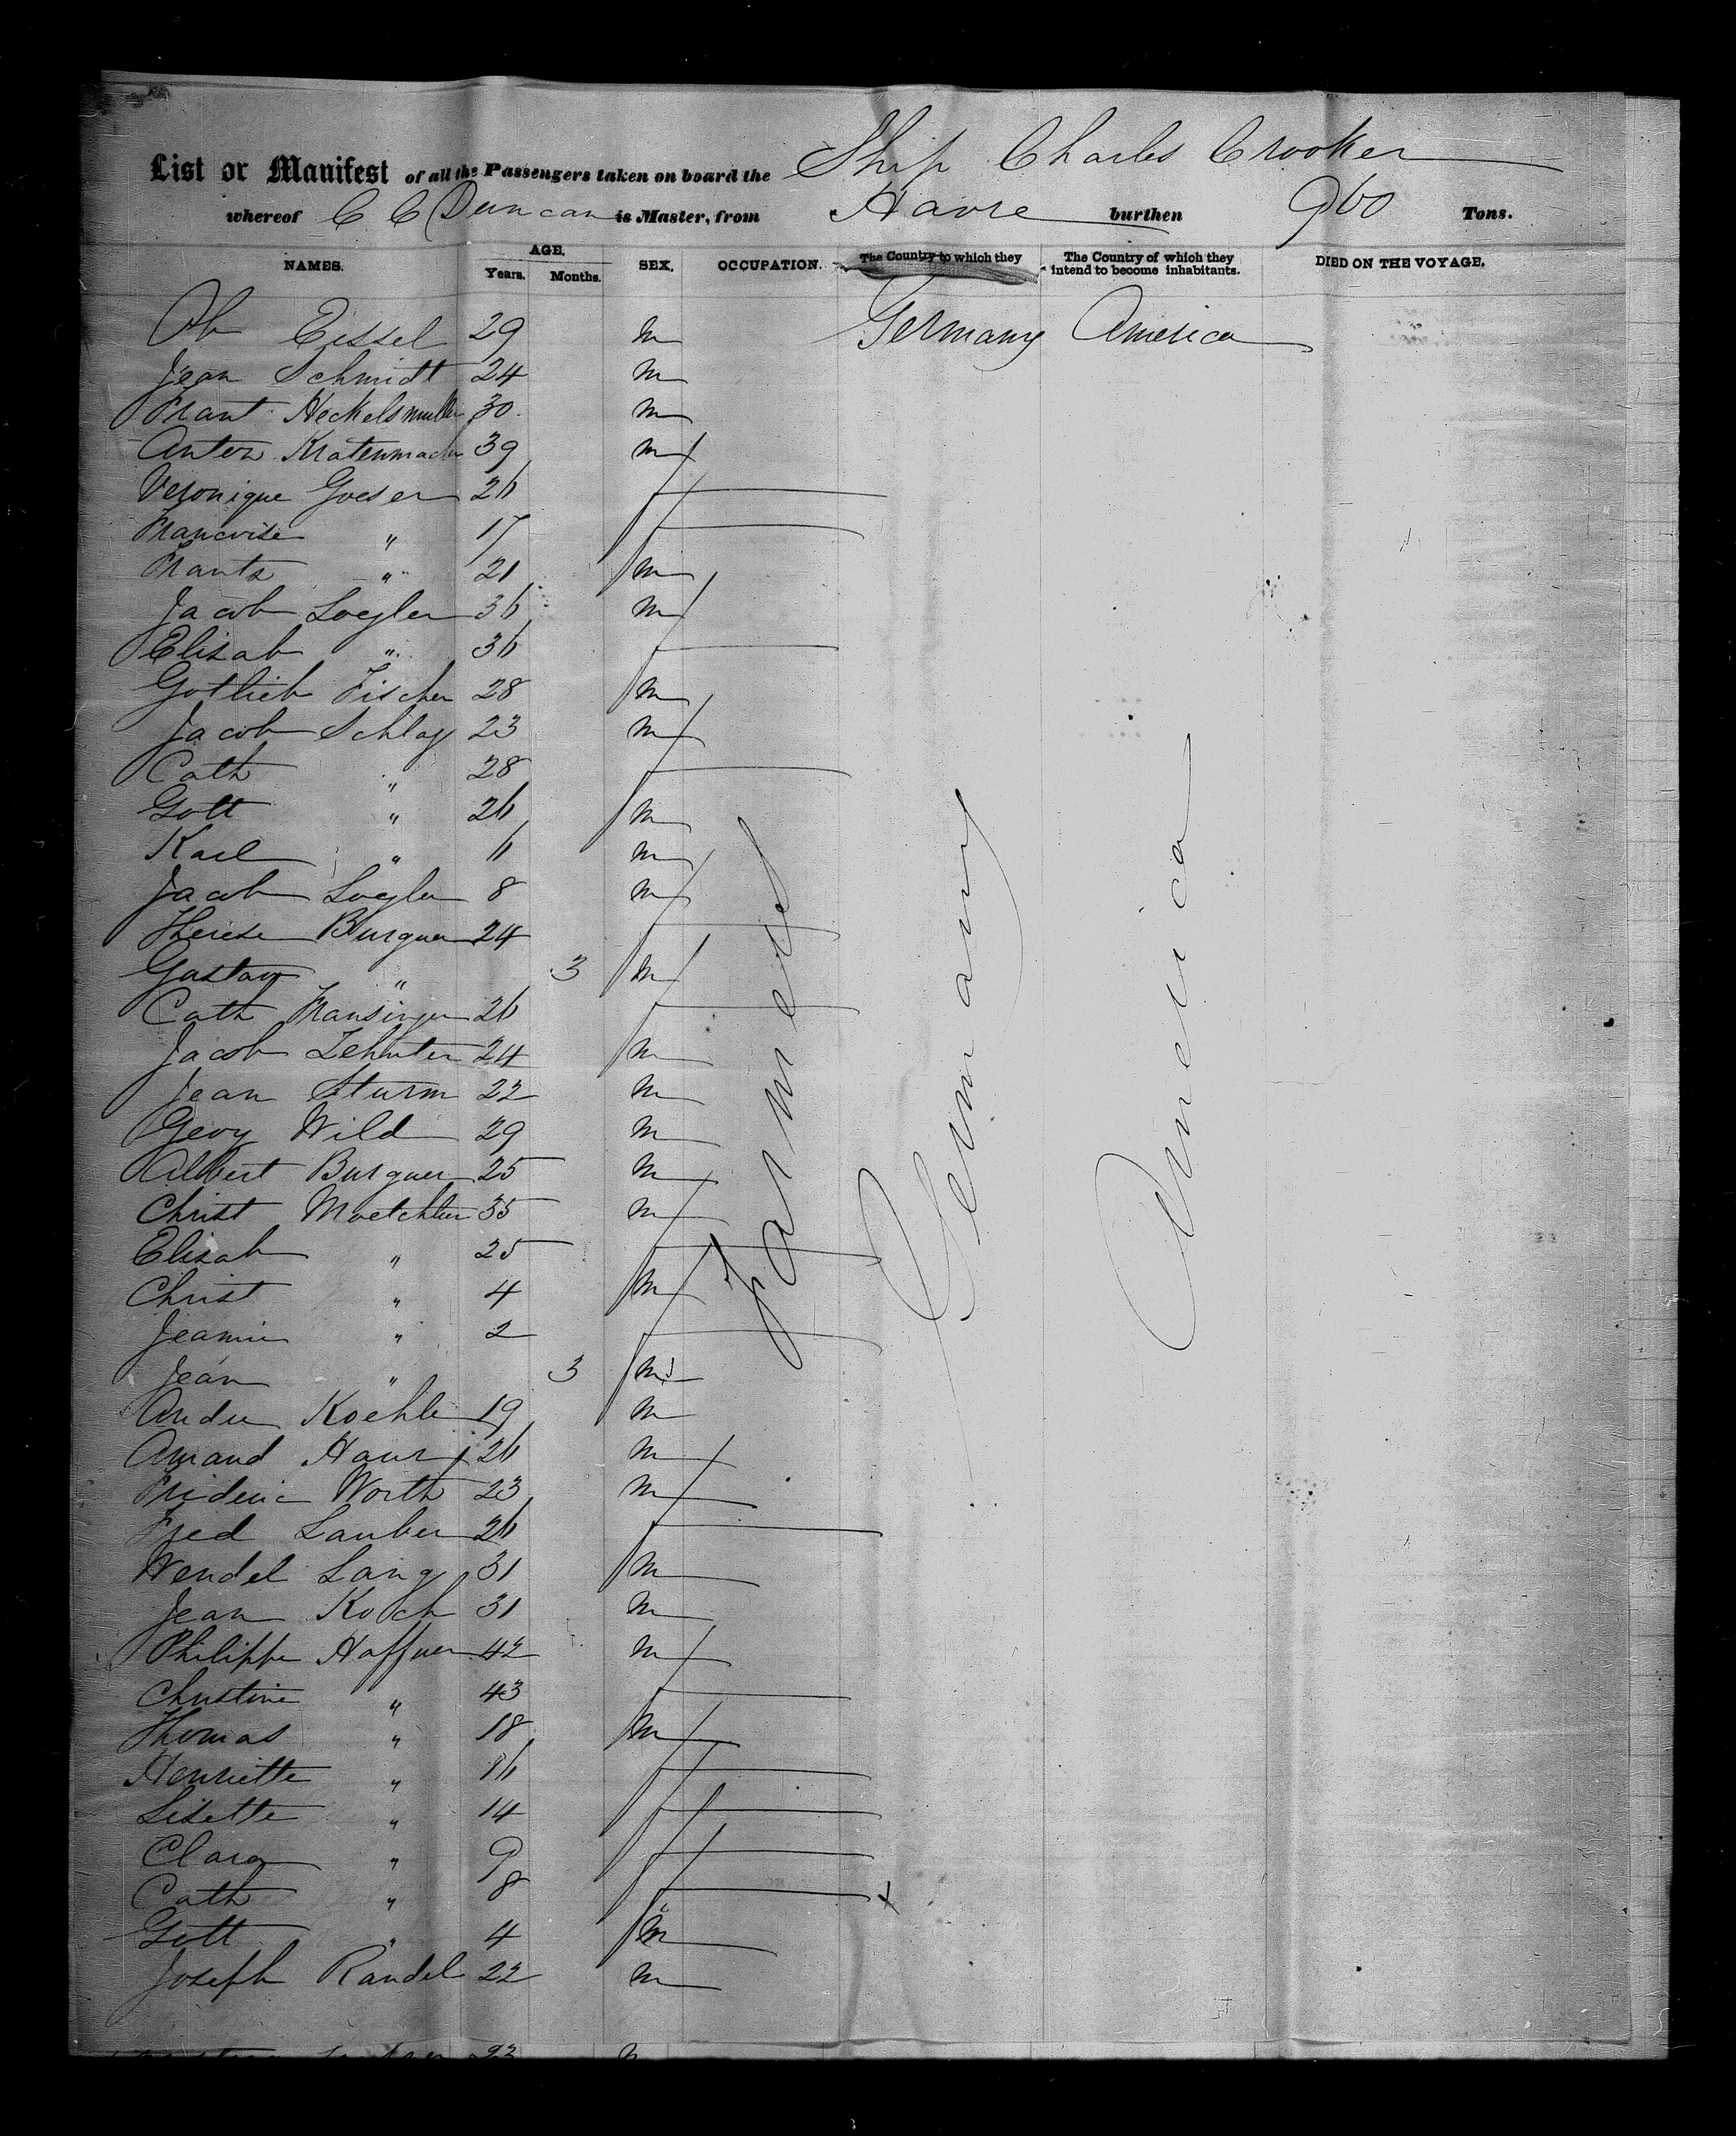 List or Manifest of all the Passengers taken on board the Ship Charles Crooker
whereof C C Duncan is Master, from Havre burthen 960 Tons.
NAMES. AGE. Years. Months. SEX. OCCUPATION. The Country to which they The Country of which they intend to become inhabitants. DIED ON THE VOYAGE.
Eissel 29 m Germany America
Jean Schmidt 24 m
Frant Heckelsmuller 30 m
Anton Kratenmacher 39 m
Veronique Goeser 26 f
Francoise " 17 f
Frantz " 21 m
Jacob Loegler 36 m
Elisab " 36 f
Gotlieb Fischer 28 m
Jacob Schlag 23 m
Cath " 28 f
Gott " 26 m
Karl " 6 m
Jacob Loegler 8 m
Therese Burguer 24 f
Gustav " 3 m
Cath 26 f
Jacob Zehnter 24 m
Jean Sturm 22 m
Georg Wild 29 m
Albert Burguer 25 m
Christ Moetchler 35 m
Elisab " 25 f
Christ " 4 m
Jeannie " 2 f
Jean " 3 m
Andre Koehler 19 m
Amand Haur 26 m
Frideric Worth 23 m
Fred Lauber 26 f
Wendel Lang 31 m
Jean Koch 31 m
Philippe Haffner 42 m
Christine " 43 f
Thomas " 18 m
Henriette " 16 f
Lisette " 14 f
Clara " 9 f
Cath " 8 f x
Gott " 4 m
Joseph Randel 22 m
Farmers
Germany
America
23 m